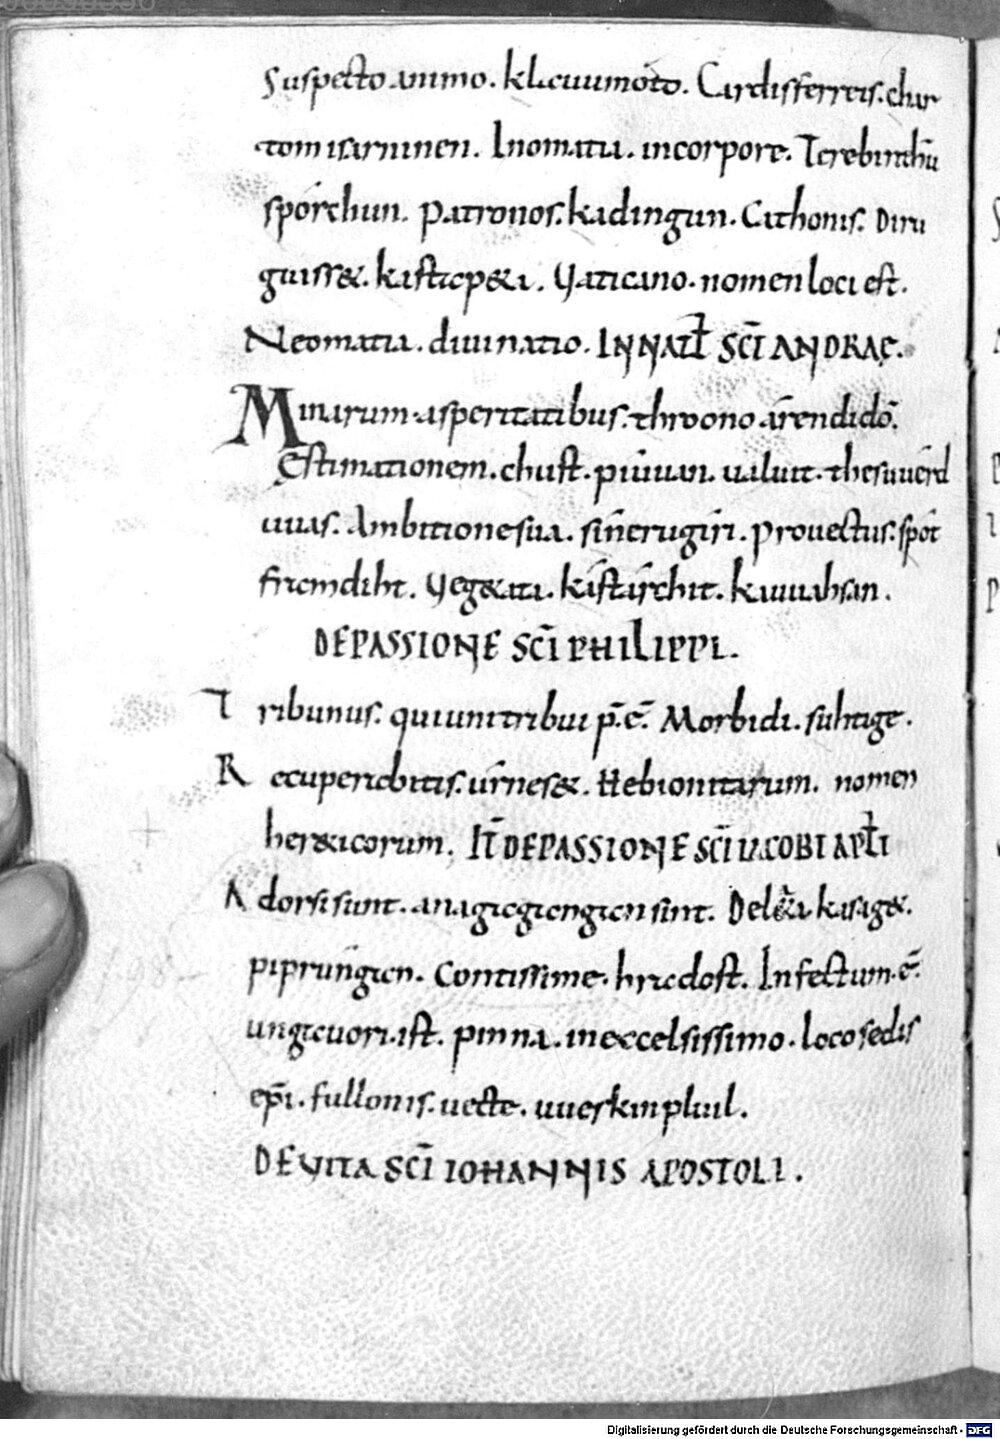 Suspecto animo. kleuuimoto. Cardisferreis. char
tomisarninen. Inomatia. incorpore. Terebinthū
sporchun. Patronos. kadingun. Cathonis. Diru
guiss&. kasticp&i. Vaticano. nomen loci est.
Neomatia. diuinatio. IN NATL̄ SC̄I ANDRAĘ.
Minarum asperitatibus. throono árendidō.
Estimationem. chust. piuuan. ualuit. thesuuérd
uuas. Ambitione sua. sínerugiri. Prouectus. spót
fremdiht. Veg&ata. kistárchit. kauuahsan.
DE PASSIONE SC̄I PHILIPPI.
Tribunus. qui uni tribui p̄.ē. Morbidi. suhtige.
Recuperiebitis. urnes&. Hebionitarum. nomen
her&icorum. IT̄ DE PASSIONE SC̄I IACOBI APL̄I
Adorsi sunt. anagiegiengien sint. Delata kasag&.
piprungien. Contissime. hriedost. Infectum.ē.
ungieuuori.ist. pinna. in excelsissimo. loco sedis
ep̄i. fullonis. uecte. uueskinpliuil.
DE VITA SC̄I IOHANNIS APOSTOLI.
Digitalisierung gefördert durch die Deutsche Forschungsgemeinschaft - DFG